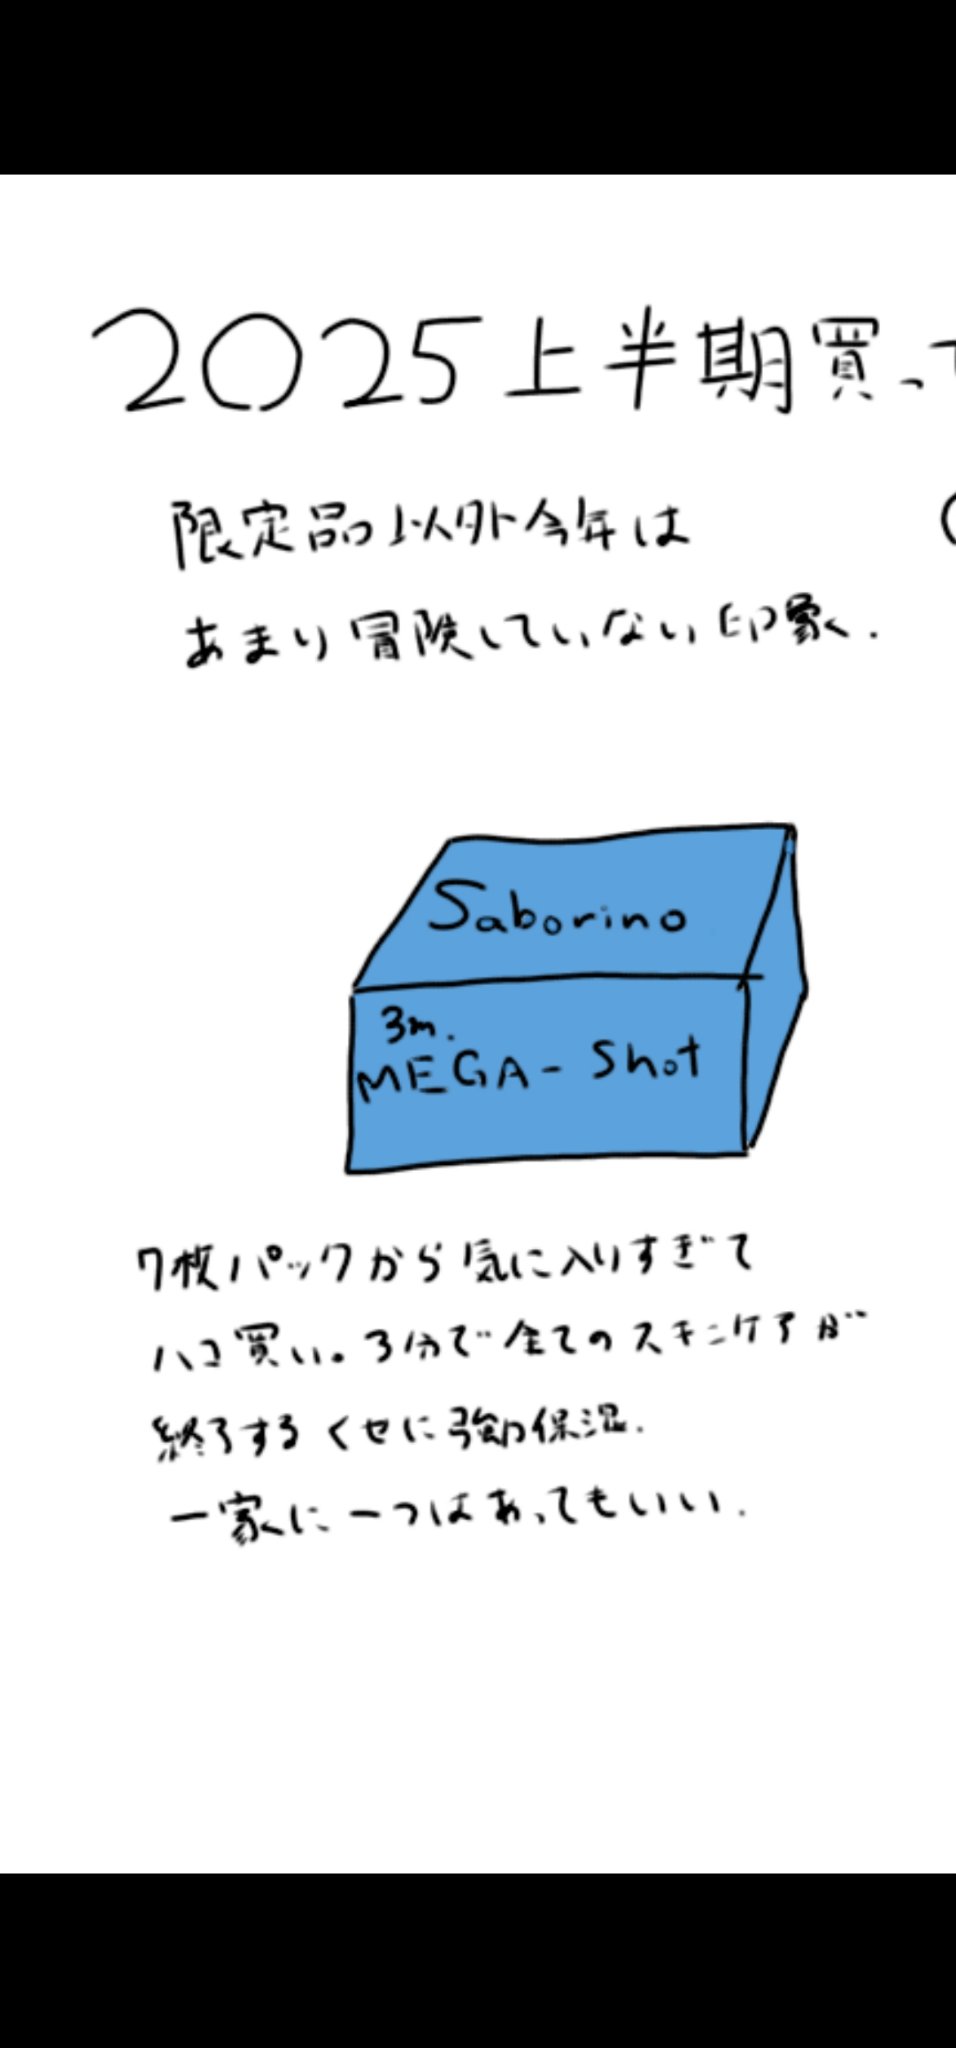 2025上半期買って
限定品以外今年は
あまり冒険していない印象.
Saborino
3m.
MEGA-Shot
7枚パックから気に入りすぎて
ハコ買い。3分で全てのスキンケアが
終了するくせに強力保湿.
一家に一つはあってもいい.